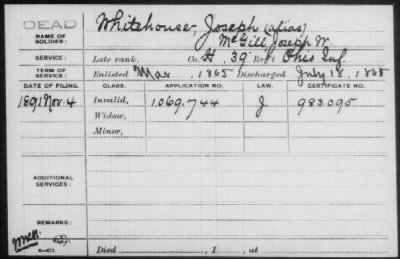 DEAD
NAME OF SOLDIER: Whitehouse, Joseph (alias)
McGill, Joseph W.
SERVICE: Late rank, Co. H, 39 Reg't Ohio Inf.
TERM OF SERVICE: Enlisted Mar , 1865 Discharged July 18, 1865
DATE OF FILING. CLASS. APPLICATION NO. LAW. CERTIFICATE NO.
1891 Nov. 4 Invalid, 1.069.744 J 983.095
Widow,
Minor,
ADDITIONAL SERVICES:
REMARKS:
Died , 1 , at